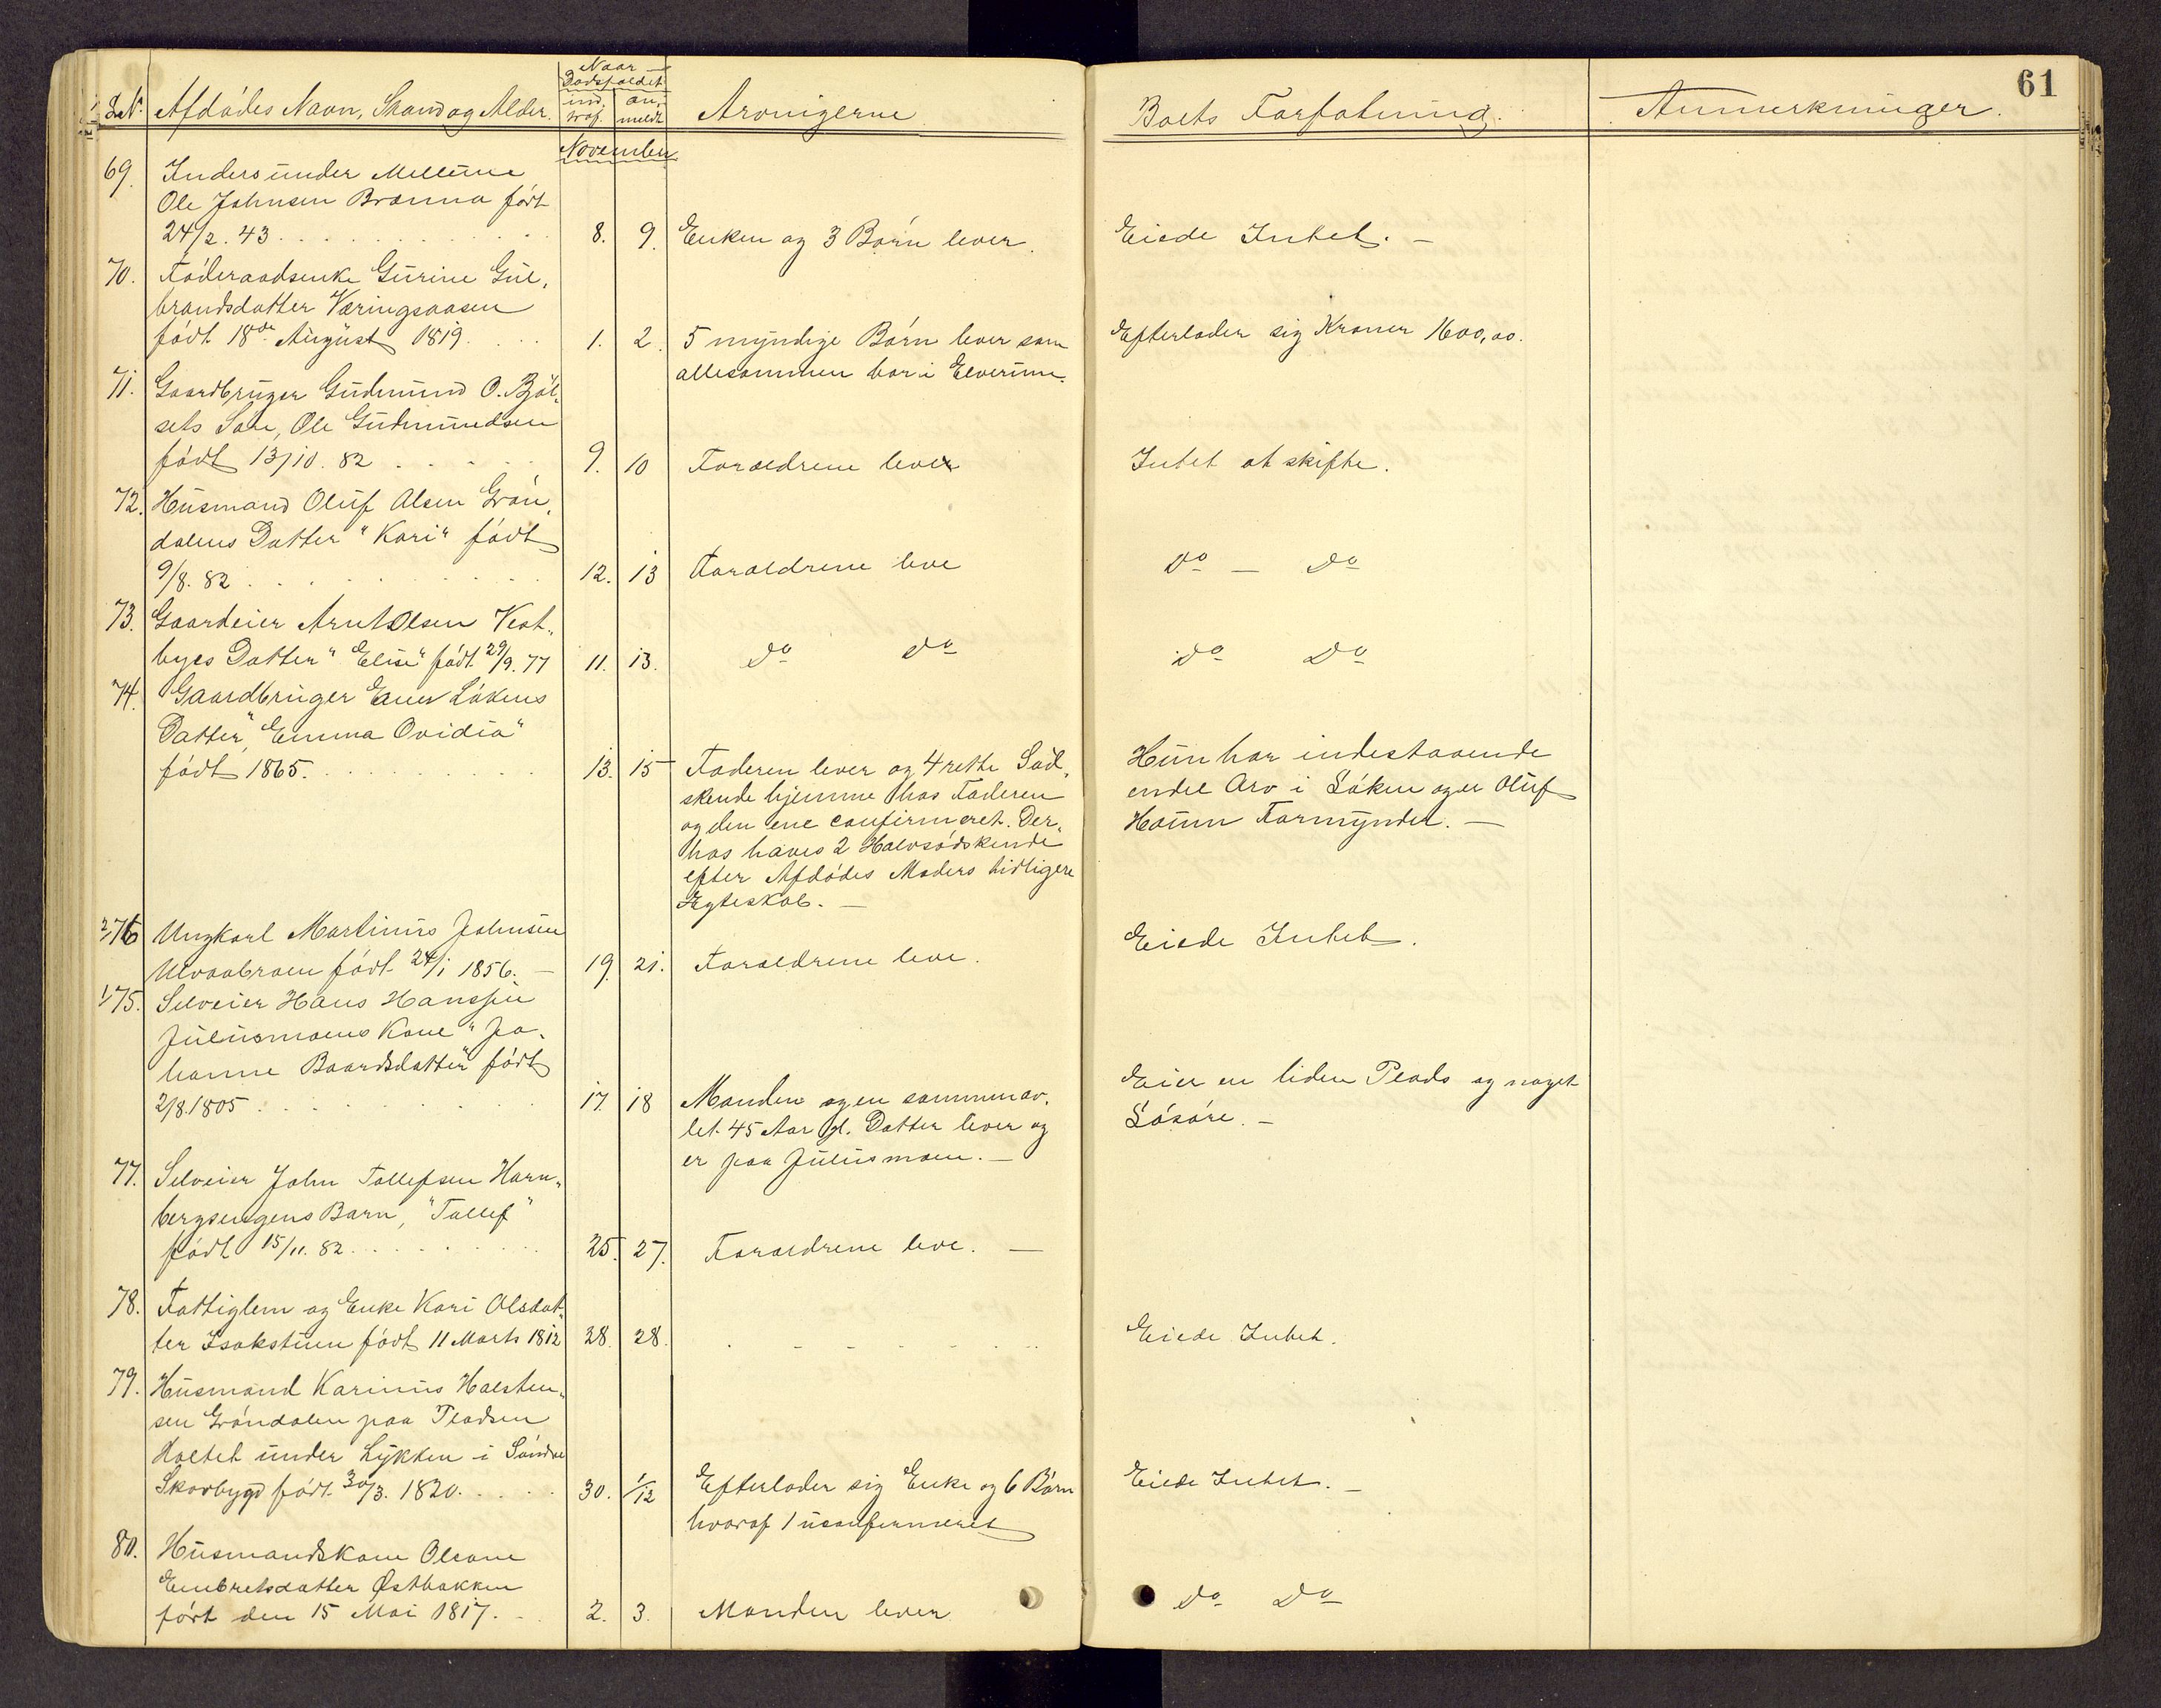 61
Naar
Dødsfaldet
L.N. Afdødes Navn, Stand og Alder. ind, traf. an, meldt Arvingerne. Boets Forfatning. Anmerkninger.
November
69. Inders under Mellem
Ole Johnsen Brænna født
24/2. 43 . . . 8. 9. Enken og 3 Børn lever. Eiede Intet. —
70. Føderaadsenke Gurine Gul,
brandsdatter Væringsaasen
født 18de August 1819. . . . 1. 2. 5 myndige Børn lever som Efterlader sig Kroner 1600,00.
allesammen bor i Elverum.
71. Gaardbruger Gudmund O. Bjøl,
sets Søn, Ole Gudmundsen
født 13/10. 82 . . . 9. 10 Forældrene lever Intet at skifte.
72. Husmand Oluf Olsen Grøn,
dalens Datter "Kari" født
9/8. 82 . . . 12. 13 Forældrene leve do — do
73. Gaardeier Arnt Olsen Vest,
byes Datter "Elise" født 29/9. 77 11. 13. do do do do
74. Gaardbruger Løkens
Datter, "Emma Ovidia"
født 1865. . . . 13. 15 Faderen lever og 4 rette Sød, Hun har indestaaende
skende hjemme hos Faderen endel Arv i Løken og er Oluf
og den ene confirmeret. Der, Formynder. —
hos haves 2 Halvsødskende
efter Afdødes Moders tidligere
Egteskab. —
2/76 Ungkarl Martinus Johnsen Eiede Intet.
Ulvaabraen født 24/1 1856. — 19. 21. Forældrene leve.
1/75. Selveier Hans Hanssen
Julusmoens Kone "Jo,
hanne Baardsdatter" født Eier en liden Plads og noget
2/8. 1805 . . . 17. 18 Manden og en sammenav, Løsøre. —
let 45 Aar gl. Datter lever og
er paa Julusmoen. —
77. Selveier John Tollefsen Horn,
bergsengens Barn, "Tollef"
født 15/11. 82 . . . 25. 27. Forældrene leve. —
78. Fattiglem og Enke Kari Olsdat,
ter Isakstuen født 11 Marts 1812 28. 28. . - - - - . . Eiede Intet.
79. Husmand Karinus Halsten,
sen Grøndalen paa Pladsen
Holtet under Lykken i Søndre
Skovbygd født 30/3. 1820. . . . 30. 1/12 Efterlader sig Enke og 6 Børn Eiede Intet. —
hvoraf 1 uconfirmeret
80. Husmandskone Oleane
Embretsdatter Østbakken
født den 15 Mai 1817. . . 2. 3. Manden lever do do